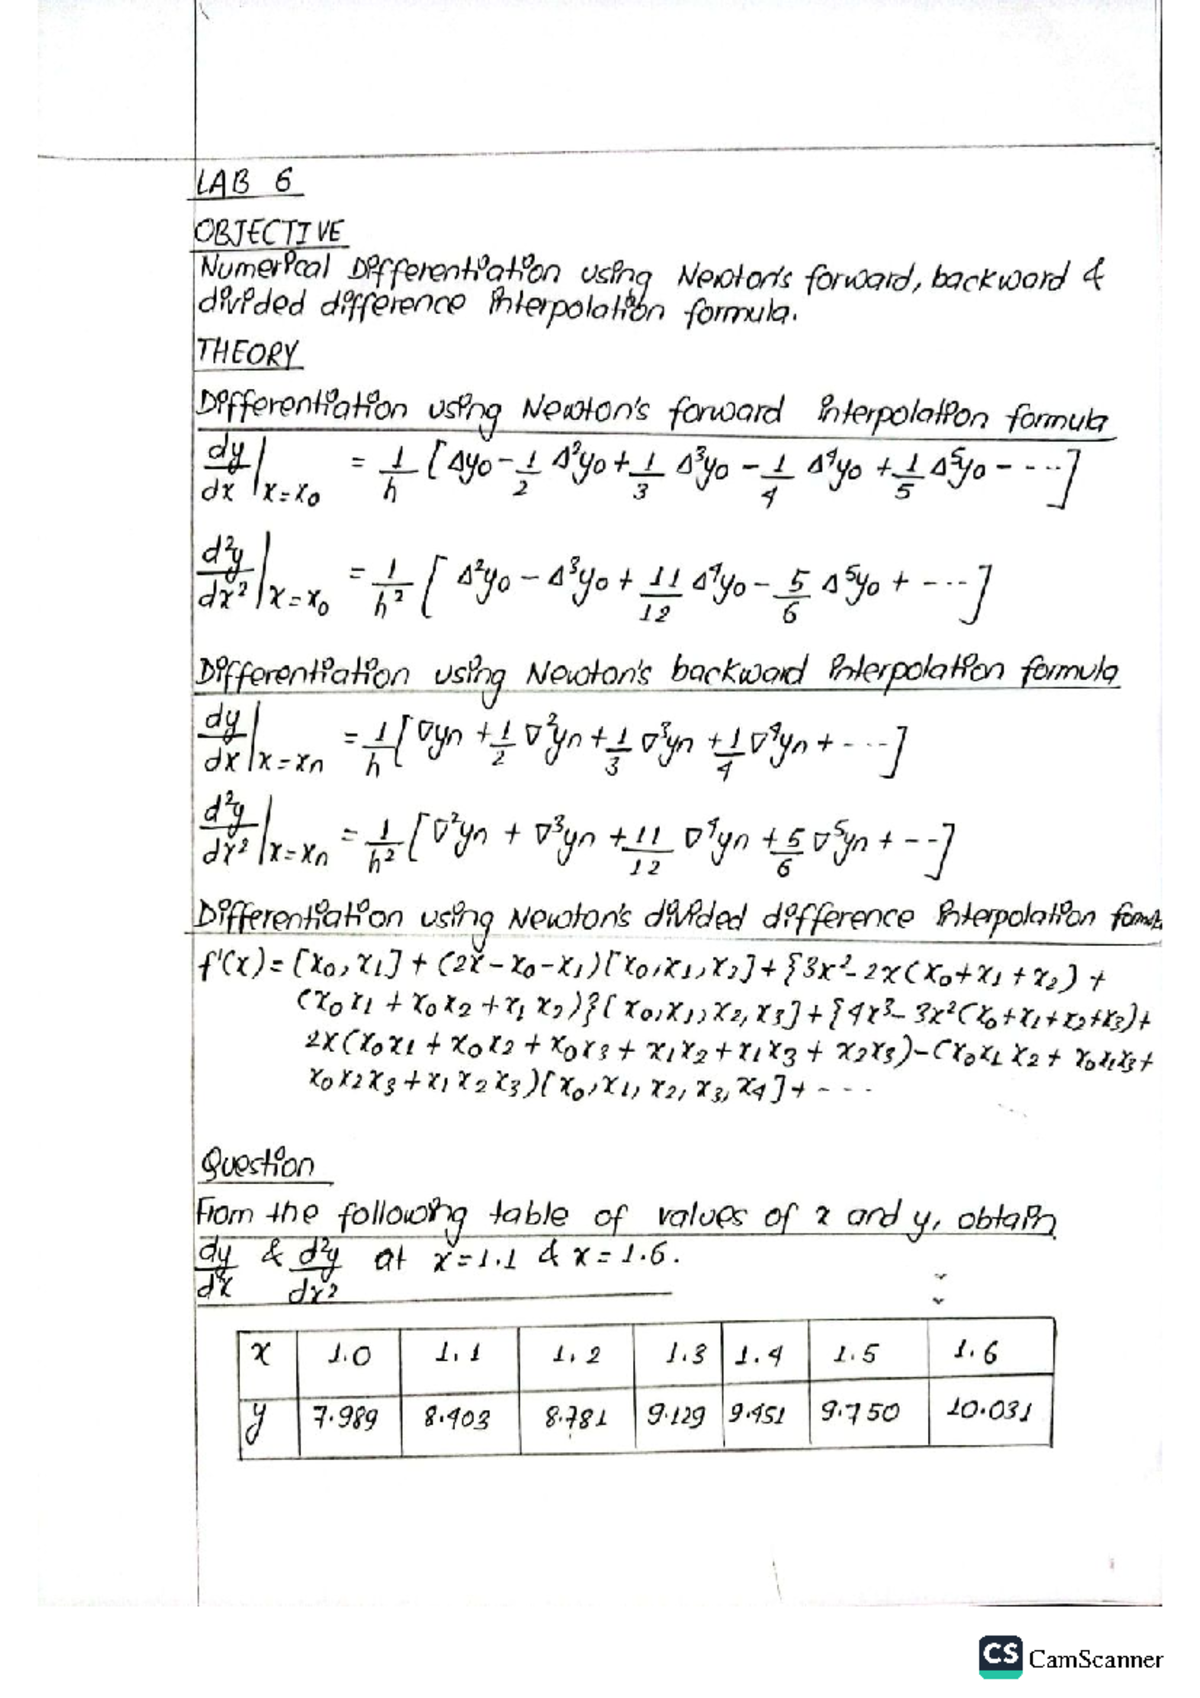 LAB 6
OBJECTIVE
Numerical Differentiation using Newton's forward, backward &
divided difference interpolation formula.
THEORY
Differentiation using Newton's forward interpolation formula
dy/dx |x=x₀ = 1/h [Δy₀ - 1/2 Δ²y₀ + 1/3 Δ³y₀ - 1/4 Δ⁴y₀ + 1/5 Δ⁵y₀ - ---]
d²y/dx² |x=x₀ = 1/h² [Δ²y₀ - Δ³y₀ + 11/12 Δ⁴y₀ - 5/6 Δ⁵y₀ + ---]
Differentiation using Newton's backward interpolation formula
dy/dx |x=xn = 1/h [∇yn + 1/2 ∇²yn + 1/3 ∇³yn + 1/4 ∇⁴yn + ---]
d²y/dx² |x=xn = 1/h² [∇²yn + ∇³yn + 11/12 ∇⁴yn + 5/6 ∇⁵yn + --]
Differentiation using Newton's divided difference interpolation
f'(x) = [x₀, x₁] + (2x - x₀ - x₁)[x₀, x₁, x₂] + {3x² - 2x(x₀ + x₁ + x₂) +
(x₀x₁ + x₀x₂ + x₁x₂)}[x₀, x₁, x₂, x₃] + {4x³ - 3x²(x₀+x₁+x₂+x₃) +
2x(x₀x₁ + x₀x₂ + x₀x₃ + x₁x₂ + x₁x₃ + x₂x₃) - (x₀x₁x₂ + x₀x₁x₃ +
x₀x₂x₃ + x₁x₂x₃)[x₀, x₁, x₂, x₃, x₄] + ---
Question
From the following table of values of x and y, obtain
dy/dx & d²y/dx² at x=1.1 & x=1.6.
x 1.0 1.1 1.2 1.3 1.4 1.5 1.6
y 7.989 8.403 8.781 9.129 9.451 9.750 10.031
CS CamScanner